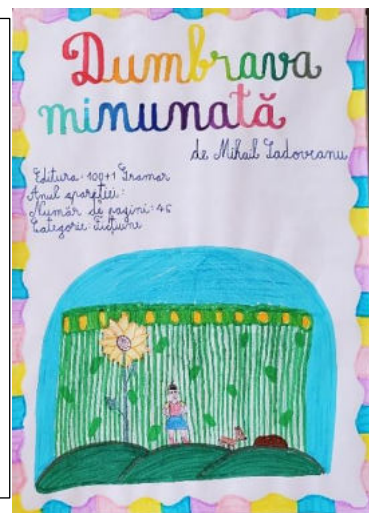 Dumbrava
minunată
de Mihail Sadoveanu
Editura: 100+1 Gramar
Anul apariției:
Număr de pagini: 46
Categorie: Ficțiune